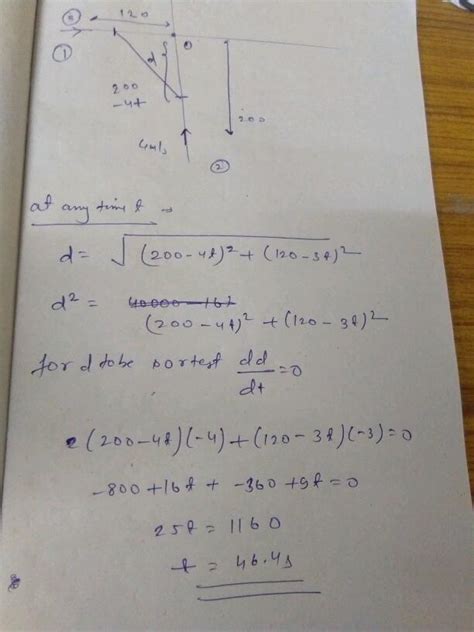 120
①
O
d
200
-4t
200
4m/s
②
at any time t →
d = √(200-4t)² + (120-3t)²
d² = 40000-16t
(200-4t)² + (120-3t)²
for d to be sortest dd/dt = 0
2(200-4t)(-4) + (120-3t)(-3) = 0
-800 + 16t + -360 + 9t = 0
25t = 1160
t = 46.4s